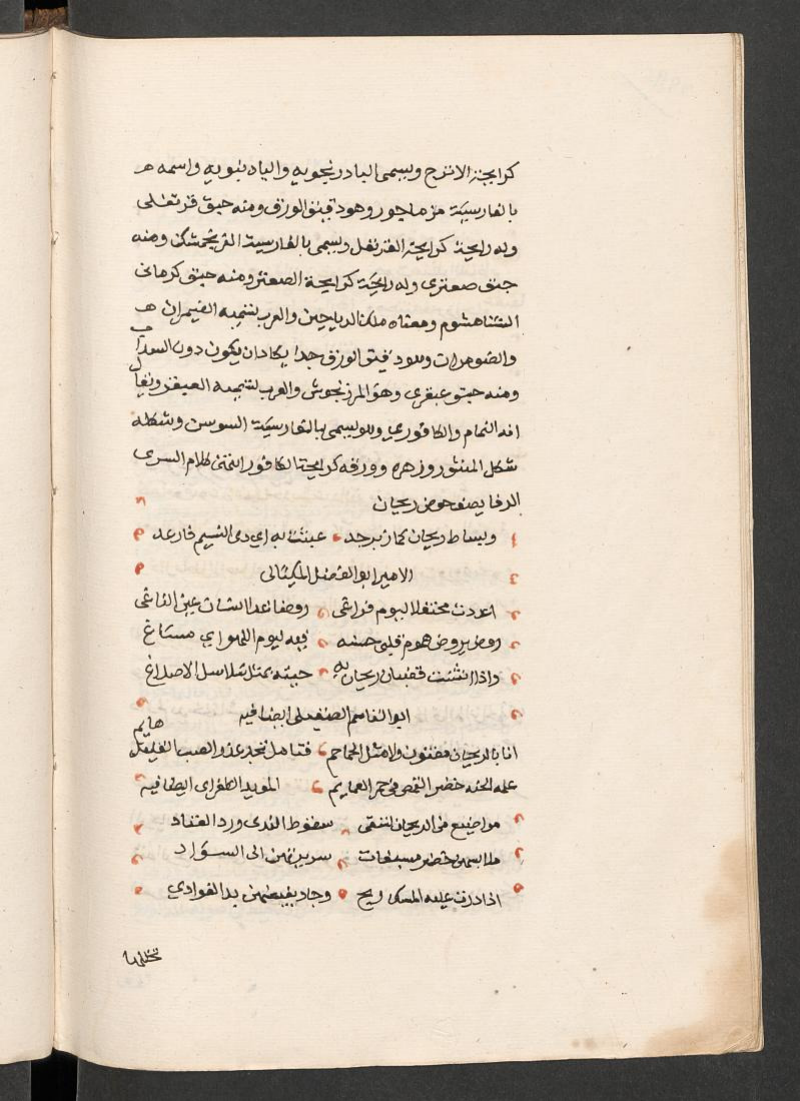 كرايجة الاترج ويسمى البادرنجويه والبادنبويه واسمه هـ
بالفارسية مرماحور وهو دقيق الورق ومنه حبق قرنفلى
وله رايحة كرايحة القرنفل ويسمى بالفارسية الفرنجمشك ومنه
حبق صعترى وله رايحة كرايحة الصعتر ومنه حبق كرمانى
الشاهشوم ومعناه ملك الرياحين والعرب تسميه الضيمران هـ
والضومران وهو دقيق الورق جدا يكاد ان يكون دون السداب
ومنه حبق عبقرى وهو المرزنجوش والعرب تسميه العبقر ويقال
انه النمام والكافوري وهو يسمى بالفارسية السوسن وشكله
شكل المنثور وزهره وورقه كرايحة الكافور انتهى كلام السرى
الرفا يصف حوض ريحان
وبساط ريحان كماز برجد عبثت به ايدى النسيم فارعد
الامير ابو الفضل الميكالى
اعددت محتفلا ليوم فراغى روضا غدا انسان عين الباغى
روض يروض هموم قلبى حسنه فيه ليوم اللهو اي مساغ
واذا انثنت قضبان ريحان به حيته بمثل سلاسل الاصداغ
ابو القاسم الصقلى ايضا فيه
انا بالريحان مفتون ولا مثل الحماحم فتاهل تجد عذر الصب هايم
عمله الجنه خضر القمص فى حمر العمايم المويد الطغراى ايضا فيه
مراضيع من الريحان تسقى سقوط الندى ورد العهاد
ملابسهن خضر مسبغات سريرتهن الى السواد
اذا درت عليه المسك ريح وجاد بفيضهن يد الغوادي
تخللها